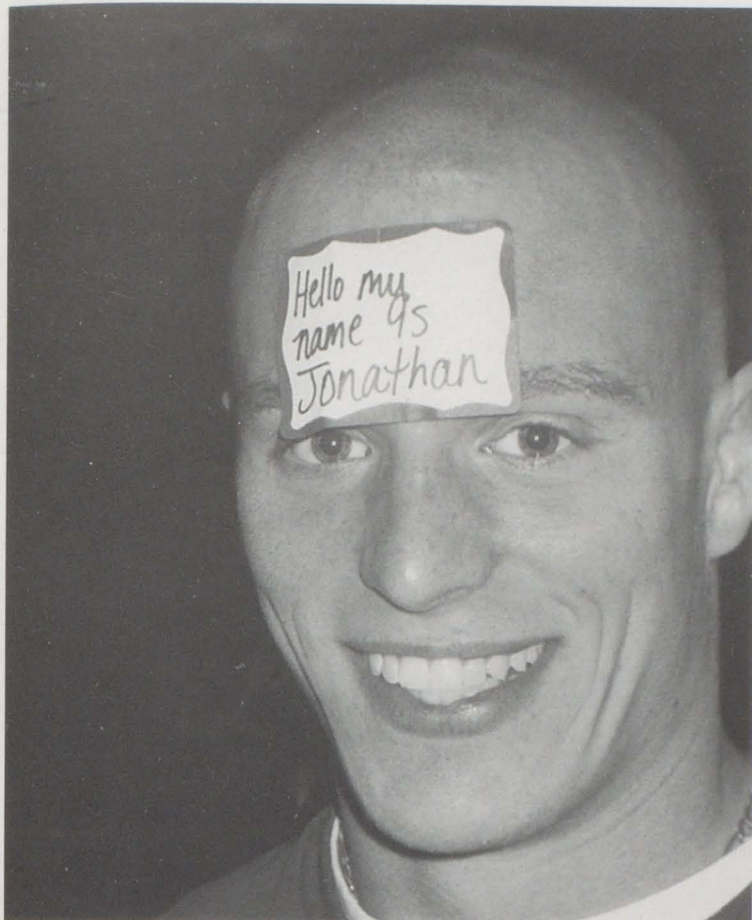 Hello my
name is
Jonathan